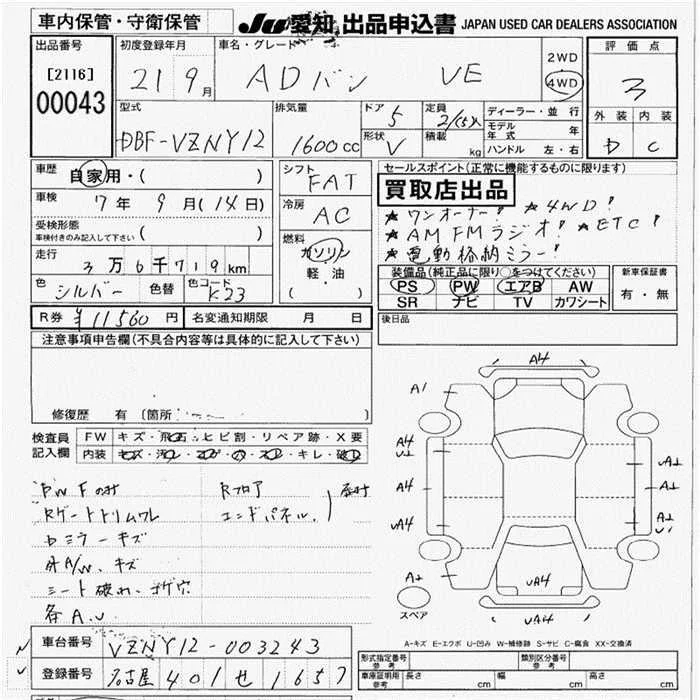 車内保管・守衛保管
JU愛知 出品申込書 JAPAN USED CAR DEALERS ASSOCIATION
出品番号
[2116]
00043
初度登録年月
21 9月
車名・グレード
ADバン VE
2WD
4WD
評価点
3
外装 内装
D C
型式
DBF-VZNY12
排気量
1600cc
ドア
5
形状
V
定員
2/(5)人
積載
kg
ディーラー・並行
モデル年式 年
ハンドル 左・右
車歴
自家用・( )
車検
7年 9月(14日)
受検形態
車検付きのみ記入して下さい ( )
走行
3万6千719km
色
シルバー
色替
色コード
K23
シフト
FAT
冷房
AC
燃料
ガソリン
軽・油
( )
セールスポイント(正常に機能するものに限ります)
買取店出品
★ワンオーナー! ★4WD!
★AM FMラジオ! ★ETC!
★電動格納ミラー!
装備品(純正品に限り○をつけてください)
PS PW エアB AW
SR ナビ TV カワシート
新車保証書
有・無
R券 ¥11560円
名変通知期限 月 日
後日品
注意事項申告欄(不具合内容等は具体的に記入して下さい)
修復歴 有 [箇所 ]
検査員記入欄
FW キズ・飛石・ヒビ割・リペア跡・X要
内装 キズ・汚レ・コゲ・穴・スレ・キレ・破レ
PWFのみ
Rフロア
Rゲートトリムワレ
エンドパネル
Dミラーキズ
シート破れ、コゲ穴
各A.U
A4
A1
A4
U1
A4
UA4
A2
UA1
A1
A2
U1
UA4
UA4
スペア
A-キズ E-エクボ U-凹み W-補修跡 S-サビ C-腐食 XX-交換済
車台番号 VZNY12-003243
登録番号 名古屋 401 せ 1657
形式指定番号 参考
類別区分番号 参考
車庫証明用 参考 長さ cm 幅 cm 高さ cm